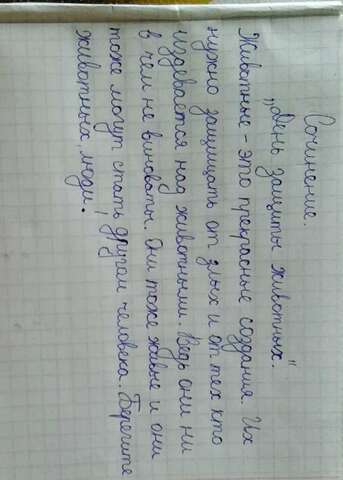 Сочинение.
„День защиты животных."
Животные - это прекрасные создания. Их
нужно защищать от злых и от тех кто
издевается над животными. Ведь они ни
в чем не виноваты. Они тоже живые и они
тоже могут стать другом человека. Берегите
животных, люди.